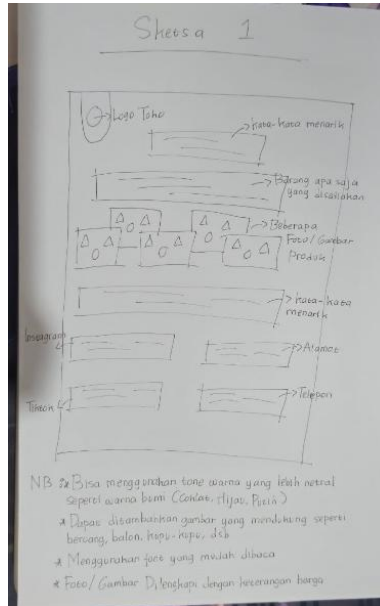 Sketsa 1
Logo Toko
kata-kata menarik
Barang apa saja
yang disediakan
Beberapa
Foto/Gambar
Produk
kata-kata
menarik
Instagram
Alamat
Telepon
NB : * Bisa menggunakan tone warna yang lebih netral
seperti warna bumi (Coklat, Hijau, Putih)
* Dapat ditambahkan gambar yang mendukung seperti
beruang, balon, kupu-kupu, dsb
* Menggunakan font yang mudah dibaca
* Foto/Gambar Dilengkapi dengan keterangan harga